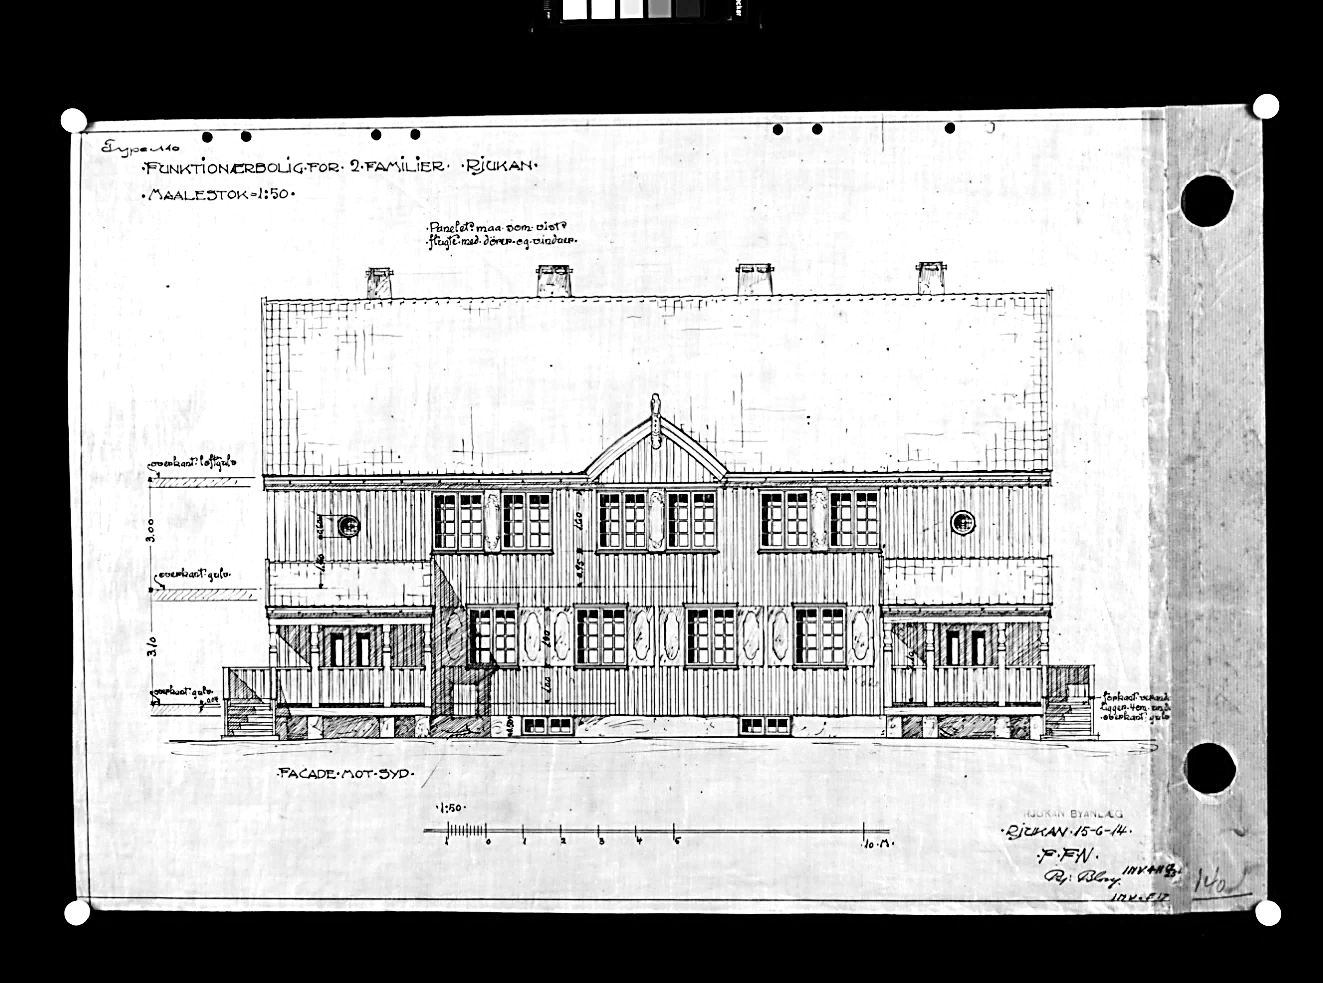 Type 110
·FUNKTIONÆRBOLIG·FOR·2·FAMILIER· ·RJUKAN·
·MAALESTOK=1:50·
·Panelet· maa som vist
·flugte·med·dörer·og·vinduer·
overkant·loftgulv
3.00
overkant·gulv·
3.10
overkant·gulv·
1.00
0.95
1.00
forkant verand
ligger 4cm· under
·overkant·gulv
·FACADE·MOT·SYD·
·1:50·
1 0 1 2 3 4 5 10·M·
RJUKAN BYANLÆG
·RJUKAN·15-6-14·
·F·FN·
INV.F.17
140